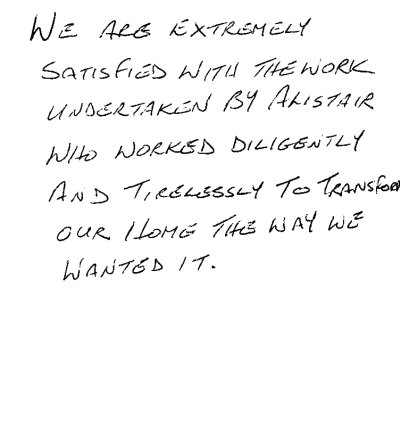 WE ARE EXTREMELY
SATISFIED WITH THE WORK
UNDERTAKEN BY ALISTAIR
WHO WORKED DILIGENTLY
AND TIRELESSLY TO TRANSFORM
OUR HOME THE WAY WE
WANTED IT.